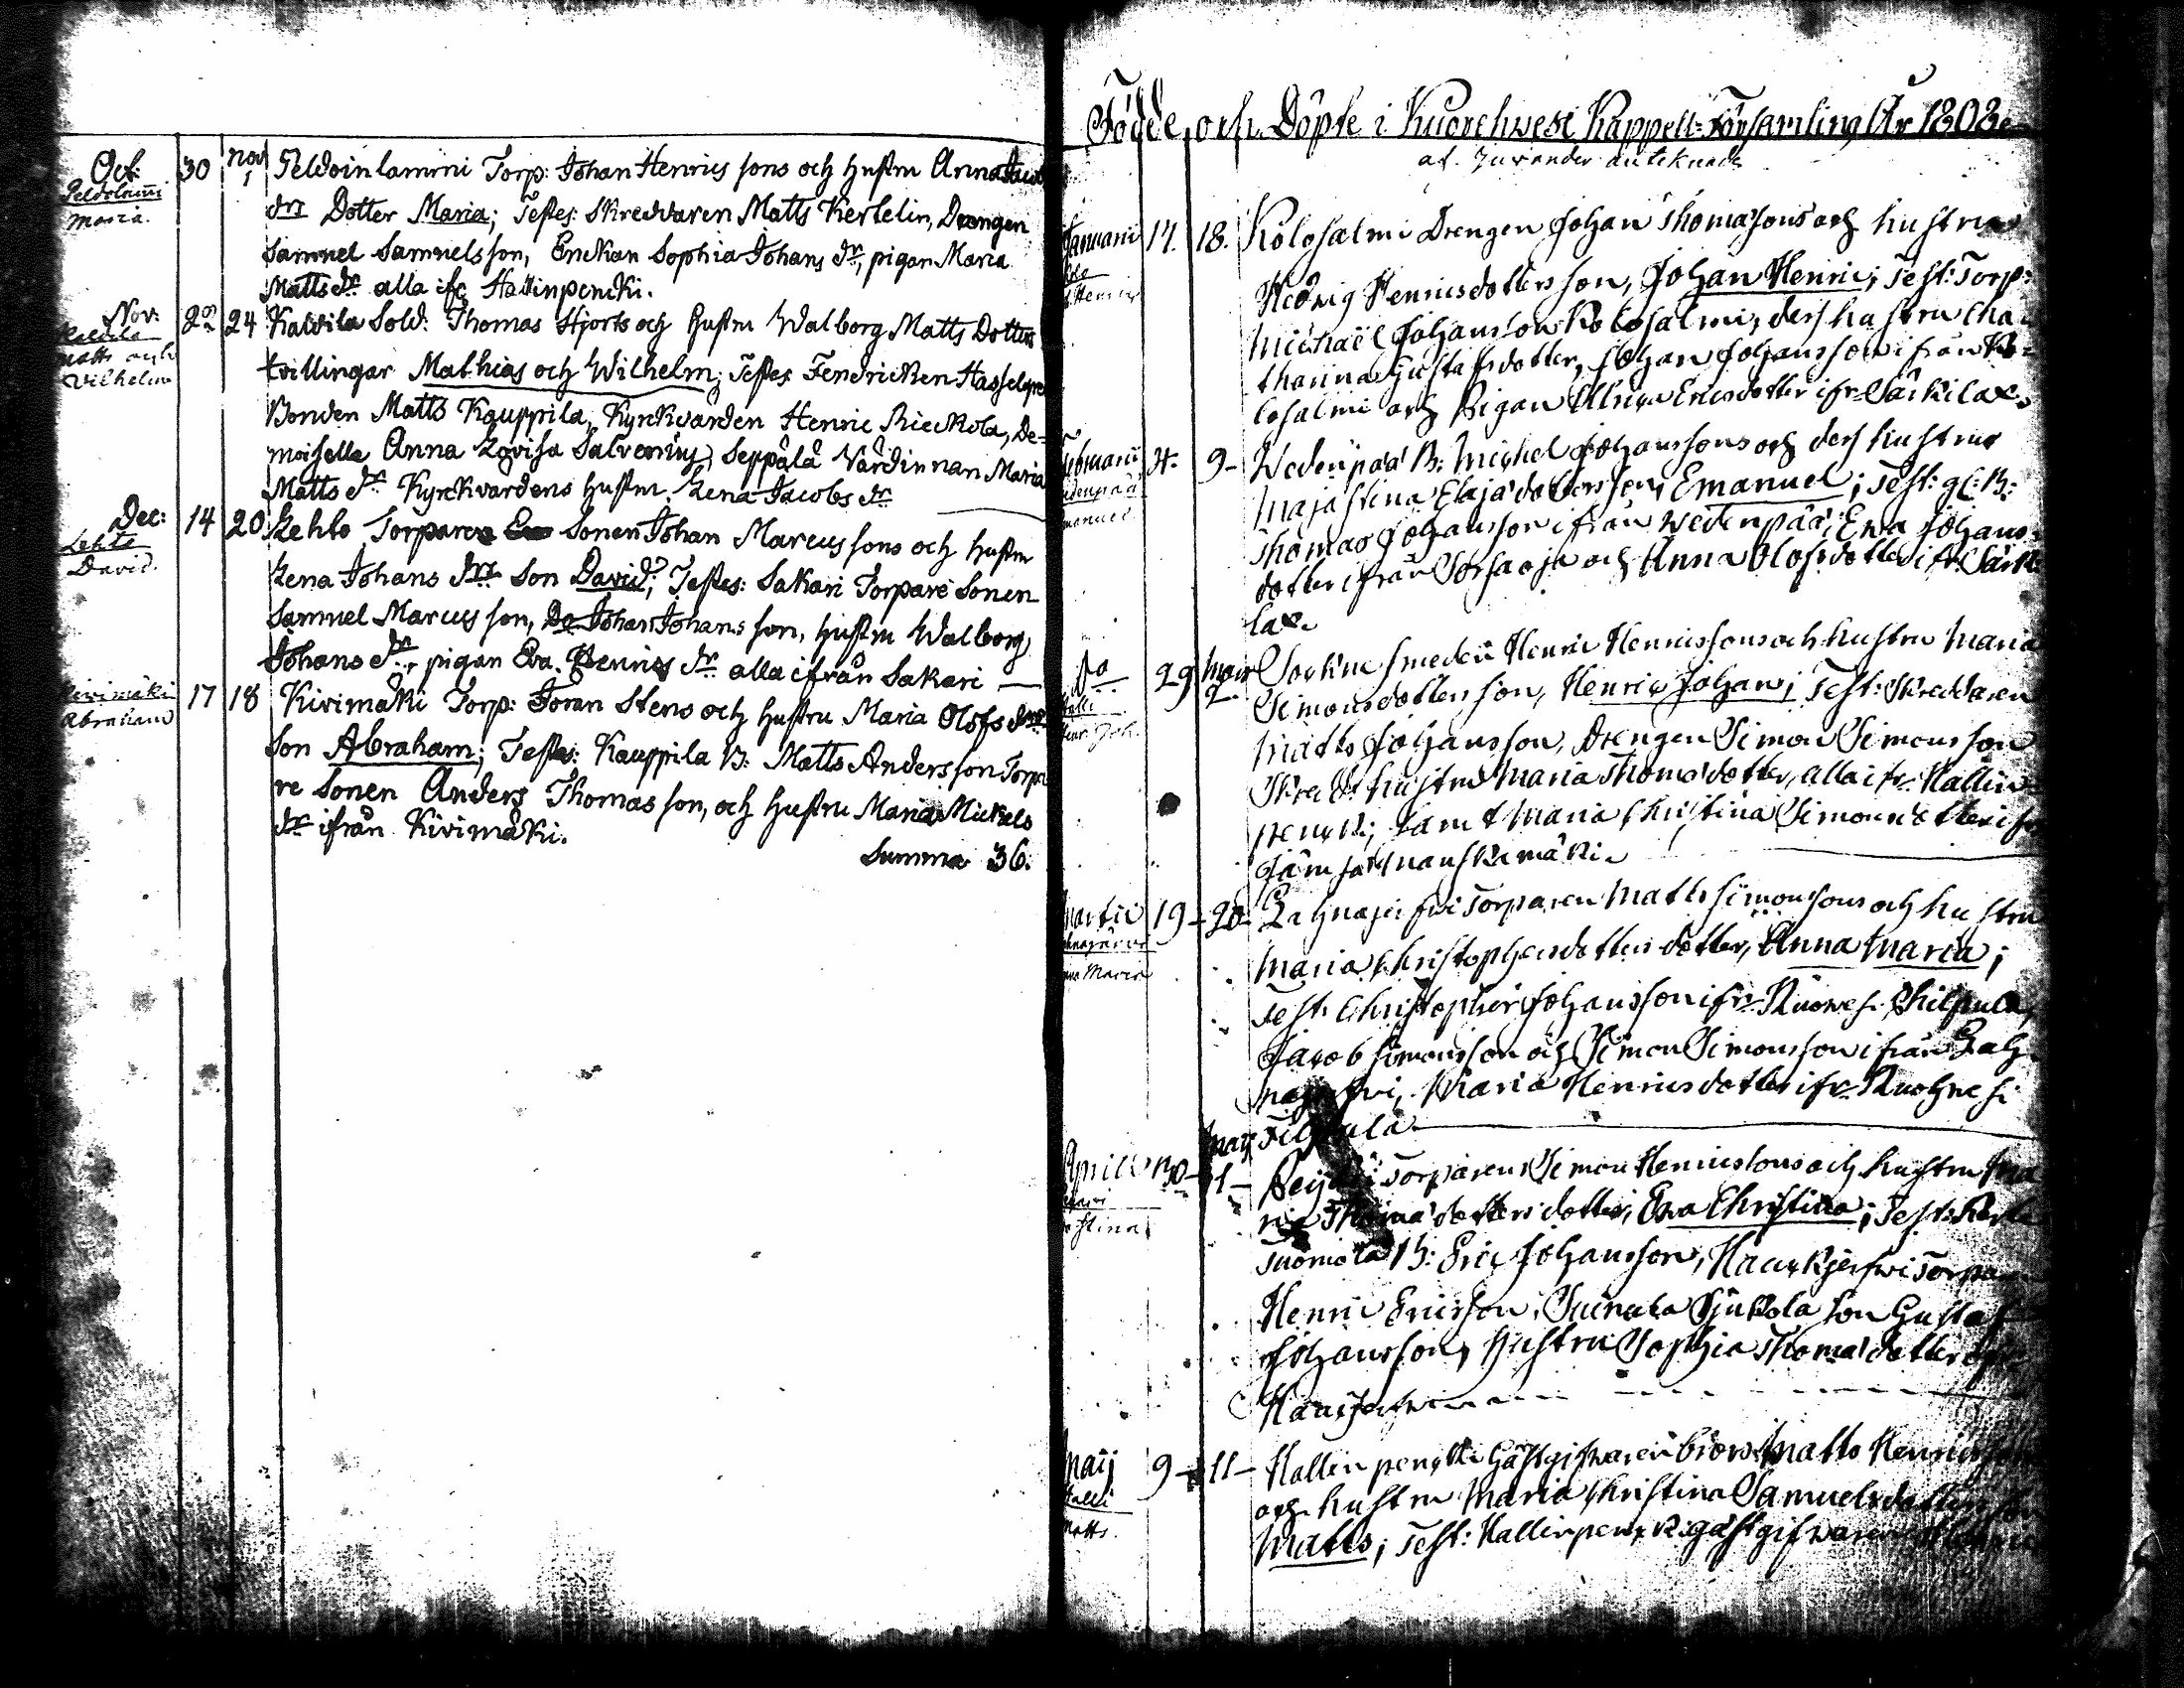 Oct: 30 nov 1 Peldoinlammi Torp: Johan Henrics sons och hustru Anna Jacobs
Peldolammi
Maria.
drs Dotter Maria; Testes: Skreddaren Matts Kertelin, Drengen
Samuel Samuelsson, Enckan Sophia Johans dr, pigan Maria
Matts dr alla ifr Hallinpencki.
Nov: 22 24 Kaldila Sold: Thomas Hjorts och hustru Walborg Matts Dotters
Kaldila
Matts och
Vilhelm
tvillingar Mathias och Wilhelm; Testes Fendricken Hasselgren
Bonden Matts Kauppila, Kyrkvarden Henric Rieckola, De-
moiselle Anna Lovisa Salvenius, Seppälä Värdinnan Maria
Matts dr Kyrkvardens hustru Lena Jacobs dr
Dec: 14 20 Lehto Torpare Sonen Johan Marcus sons och hustru
Lehto
David.
Lena Johans drs Son David; Testes: Sakari Torpare Sonen
Samuel Marcus son, Do Johan Johans son, hustru Walborg
Johans dr, pigan Eva Henrics dr alla ifrån Sakari
Kivimäki 17 18 Kivimäki Torp: Joran Stens och hustru Maria Olofs drs
Abraham
Son Abraham; Testes: Kauppila B: Matts Andersson Torpa
re Sonen Anders Thomas son, och hustru Maria Mickels
dr ifrån Kivimäki.
Summa 36.
Födde och Döpte i Kuorehvesi Kappell-Församling År 1808.
af Zuvander antecknade
Januarii 17. 18. Kolosalmi Drengen Johan Thomasons och hustrus
Hedvig Henricsdotters son, Johan Henric; Test: Torp:
Michaël Johansson Kolosalmi, dess hustru Cha-
tharina Gustafsdotter, Johan Johansson ifrån Ko-
losalmi och Pigan Ulrica Ericsdotter ifr Särkilax.
Februarii 4. 9- Wedenpää B: Michel Johanssons och dess hustrus
Emanuel
Maja Stina Elajædotters son, Emanuel; Test: gl: B:
Thomas Johansson ifrån Wedenpää, Eva Johans-
dotter ifrån Sorsaoja och Anna Olofsdotter ifr. Särki
lax.
Do 29 Mars 2. Smeden Henric Henricssons och hustru Maria
Halli
Henr. Joh.
Simonsdotters son, Henric Johan; Test: Skreddaren
Matts Johansson, Drengen Simon Simonsson
Skredd: hustru Maria Thomædotter, alla ifr. Hallin-
pencki; samt Maria Christina Simonsdotter ifr
Martii 19- 20- Lahnajerfvi Torparen Matts Simonsons och hustru
Anna Maria
Maria Christophersdotters dotter, Anna Maria;
Test: Christopher Johansson ifr. Ruovesi Filpula,
Jacob Simonsson och Simon Simonsson ifrån Lah-
najerfvi, Maria Henricsdotter ifr. Ruohvesi
Filpula
April 30- Maij 1- Torparens Simon Henricsons och hustru Ma
Stina
ria Thomædotters dotter, Eva Christina; Test: Kerte
Tuomola B: Eric Johansson, Haukijerfvi Torpare
Henric Ericsson, Suinula Sjukola son Gustaf
Johansson, hustru Sophia Thomædotter
Haukijerfvi
Maij 9- 11- Hallinpencki Gästgifvaren Matts Henricsson
Halli
Matts.
och hustru Maria Christina Samuelsdotters son
Matts; Test: Hallinpencki gästgifvaren